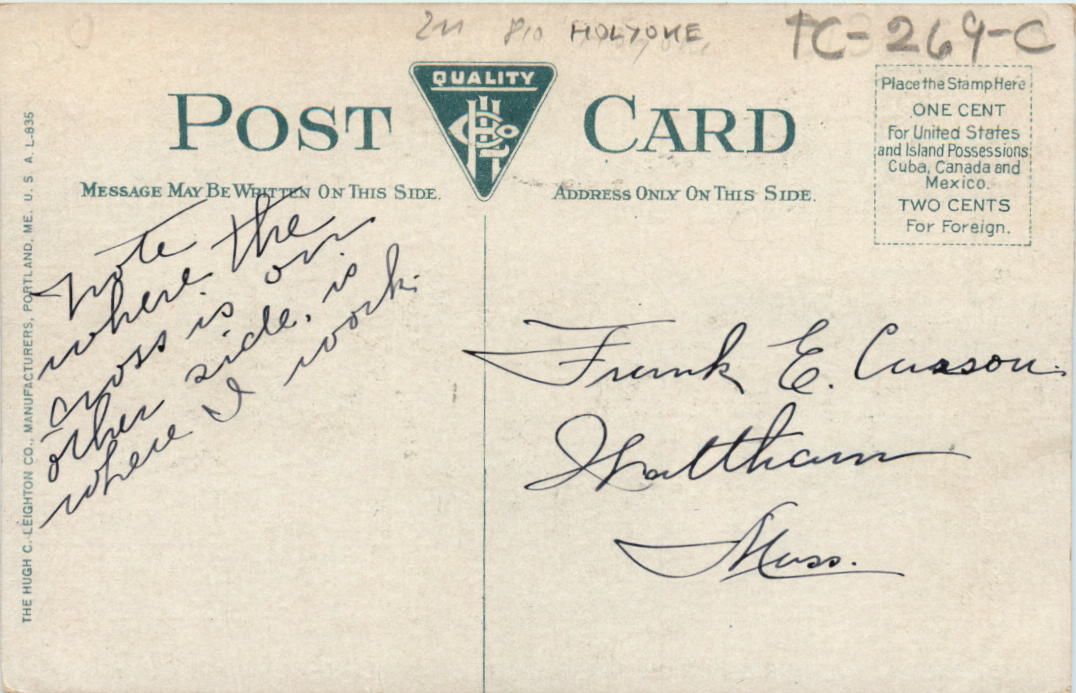 HOLYOKE
TC-269-C
QUALITY
POST CARD
MESSAGE MAY BE WRITTEN ON THIS SIDE.
ADDRESS ONLY ON THIS SIDE.
Place the Stamp Here
ONE CENT
For United States
and Island Possessions
Cuba, Canada and
Mexico.
TWO CENTS
For Foreign.
THE HUGH C. LEIGHTON CO., MANUFACTURERS, PORTLAND, ME. U. S. A. L-835
Note
where the
cross is on
other side, is
where I work.
Frank E. Cusson.
Waltham
Mass.